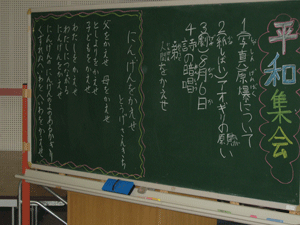 平和集会
1 写真 原爆について
2 紙しばい アオギリの願い
3 劇 8月6日
4 詩の暗唱
人間をかえせ
にんげんをかえせ
とうげさんきち
父をかえせ 母をかえせ
としよりをかえせ
こどもをかえせ
わたしをかえせ
わたしにつながる
にんげんをかえせ
にんげんの にんげんのよのあるかぎり
くずれぬへいわを へいわをかえせ